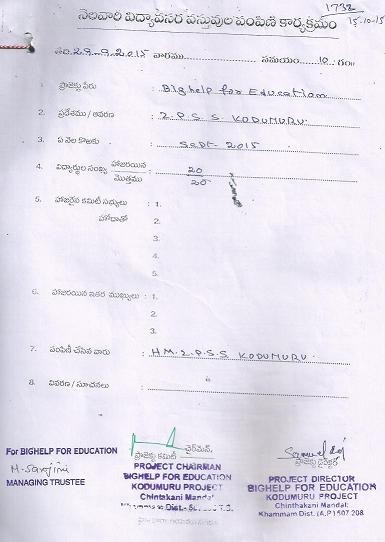 1732
15-10-15
నెలవారి విద్యావసర వస్తువుల పంపిణి కార్యక్రమం
తేది 29-9-2015 వారము సమయం 10 గం॥
1. ప్రాజెక్టు పేరు : Bighelp for Education
2. ప్రదేశము / ఆవరణ : Z.P.S.S KODUMURU
3. ఏ నెల కొఱకు : Sept-2015
4. విద్యార్థుల సంఖ్య హాజరయిన : 20
మొత్తము 20
5. హాజరైన కమిటీ సభ్యులు : 1.
హోదాతో 2.
3.
4.
5.
6. హాజరయిన ఇతర ముఖ్యులు : 1.
2.
3.
7. పంపిణీ చేసిన వారు : HM. Z.P.S.S KODUMURU.
8. వివరణ / సూచనలు :
For BIGHELP FOR EDUCATION
M. Sarojini
MANAGING TRUSTEE
ప్రాజెక్టు కమిటీ ఛైర్మెన్,
PROJECT CHAIRMAN
BIGHELP FOR EDUCATION
KODUMURU PROJECT
Chintakani Mandal
Dist.
ప్రాజెక్టు డైరెక్టర్
PROJECT DIRECTOR
BIGHELP FOR EDUCATION
KODUMURU PROJECT
Chinthakani Mandal:
Khammam Dist. (A.P) 507 208